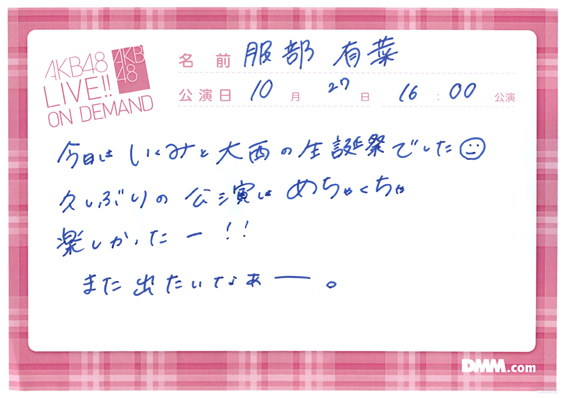 AKB48
LIVE!!
ON DEMAND
AKB
48
名前 服部有菜
公演日 10月27日 16:00公演
今日は いくみと大西の生誕祭でした
久しぶりの 公演は めちゃくちゃ
楽しかったー!!
また 出たいなぁー。
DMM.com